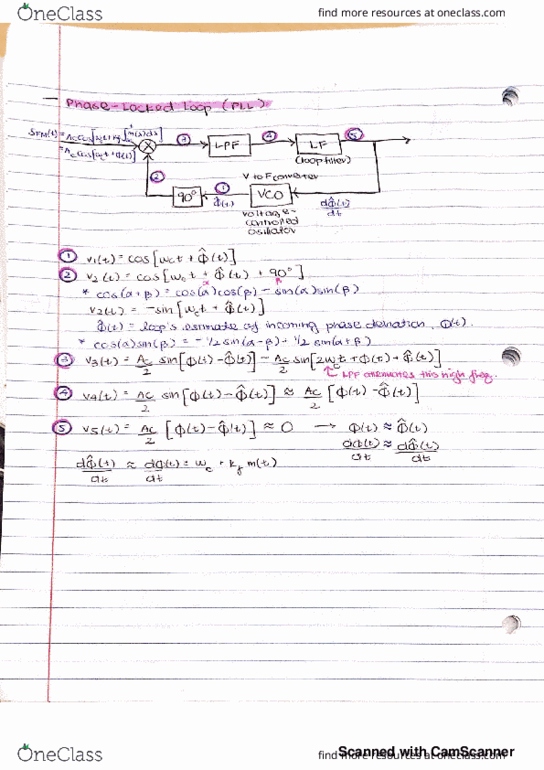 OneClass
find more resources at oneclass.com
- Phase-Locked Loop (PLL)
SFM(t) = Accos[wct + kf∫m(λ)dλ]
= Accos[wct + φ(t)]
③ LPF ④ LF ⑤
(loop filter)
② V to F converter
90° ① VCO
φ̂(t) dφ̂(t)/dt
voltage-
controlled
oscillator
① v₁(t) = cos[wct + φ̂(t)]
② v₂(t) = cos[wct + φ̂(t) + 90°]
α β
* cos(α+β) = cos(α)cos(β) - sin(α)sin(β)
v₂(t) = -sin[wct + φ̂(t)]
φ̂(t) = loop's estimate of incoming phase deviation, φ(t).
* cos(α)sin(β) = -½sin(α-β) + ½sin(α+β)
③ v₃(t) = Ac/2 sin[φ(t) - φ̂(t)] - Ac/2 sin[2wct + φ(t) + φ̂(t)]
↑ LPF attenuates this high freq.
④ v₄(t) = Ac/2 sin[φ(t) - φ̂(t)] ≈ Ac/2 [φ(t) - φ̂(t)]
⑤ v₅(t) = Ac/2 [φ(t) - φ̂(t)] ≈ 0 → φ(t) ≈ φ̂(t)
dφ(t)/dt ≈ dφ̂(t)/dt
dφ̂(t)/dt ≈ dφ(t)/dt = wc + kf m(t)
OneClass
find more resources at oneclass.com
Scanned with CamScanner